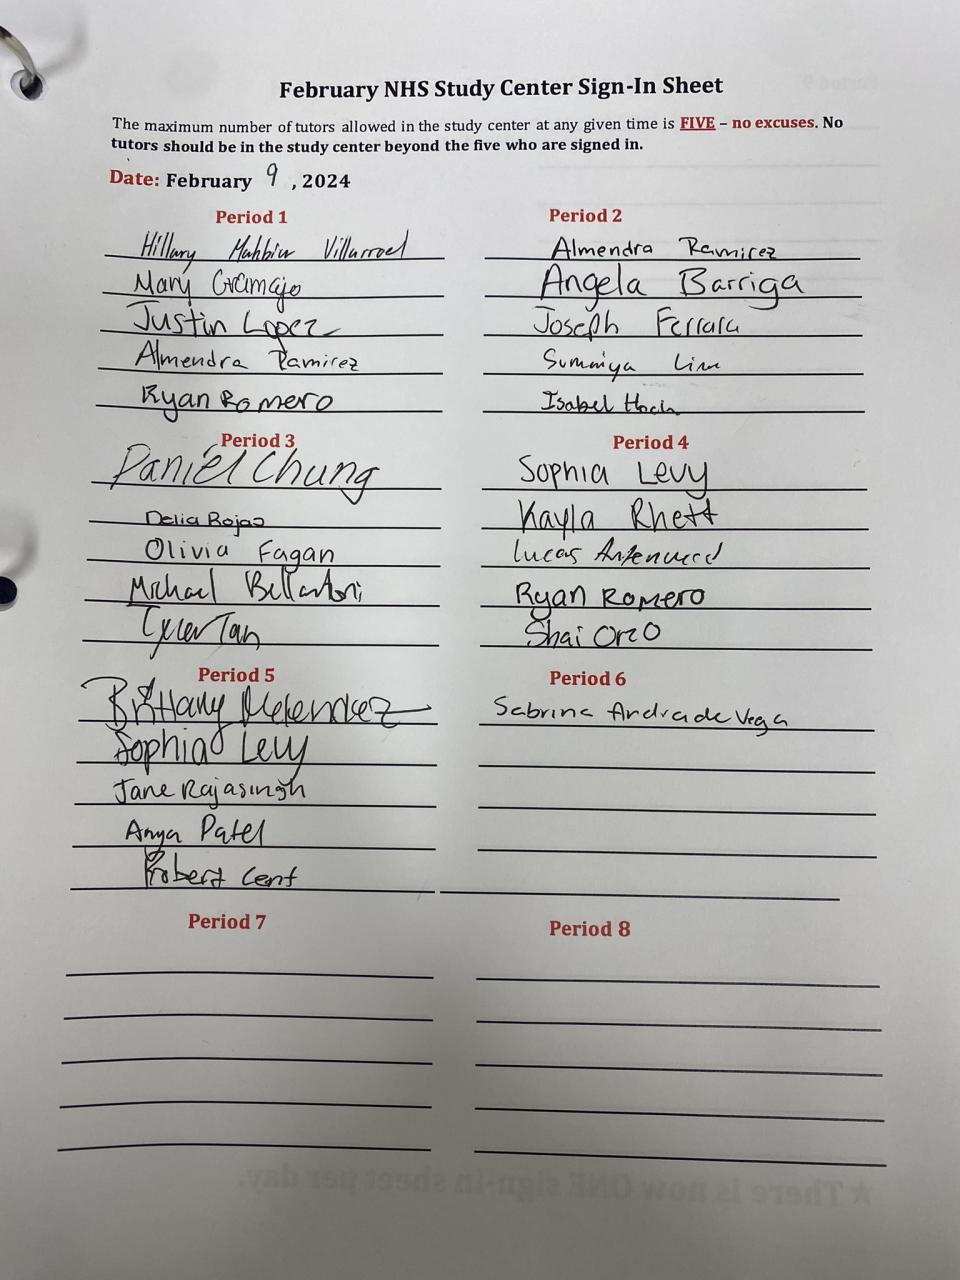 February NHS Study Center Sign-In Sheet
The maximum number of tutors allowed in the study center at any given time is FIVE – no excuses. No
tutors should be in the study center beyond the five who are signed in.
Date: February 9, 2024
Period 1
Hillary Villarroel
Mary Gramajo
Justin Lopez
Almendra Ramirez
Ryan Romero
Period 2
Almendra Ramirez
Angela Barriga
Joseph Ferrara
Summiya
Isabel
Period 3
Daniel Chung
Delia Rojas
Olivia Fagan
Michael
Tyler Tan
Period 4
Sophia Levy
Kayla Rhett
Lucas
Ryan Romero
Shai Orzo
Period 5
Brittany Melendez
Sophia Levy
Jane Rajasingh
Anya Patel
Robert Cent
Period 6
Sabrina Andrade Vega
Period 7
Period 8
★There is now ONE sign-in sheet per day.